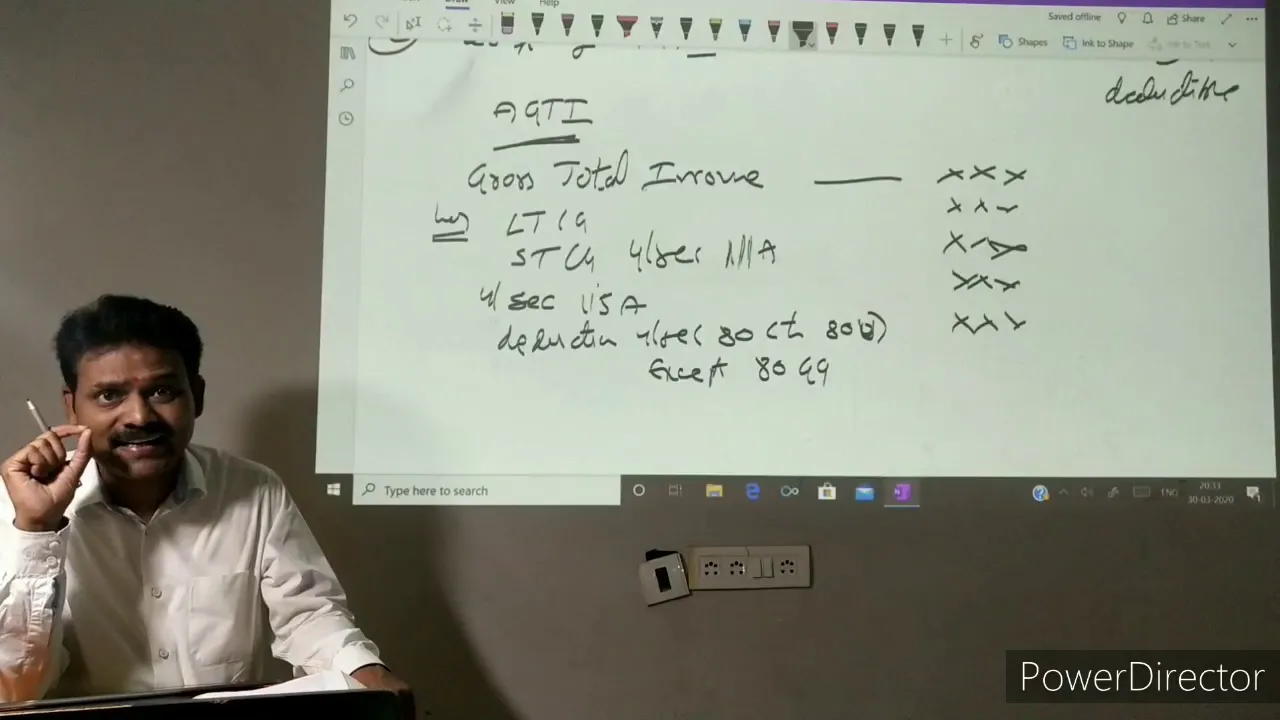 View Help
Saved offline Share
Shapes Ink to Shape Ink to Text
deductible
AGTI
Gross Total Income —— xxx
Less LTCG xxx
STCG u/sec 111A xxx
u/sec 115A xxx
deduction u/sec 80C to 80U) xxx
Except 80GG
Type here to search
ENG 20:33
30-03-2020
PowerDirector